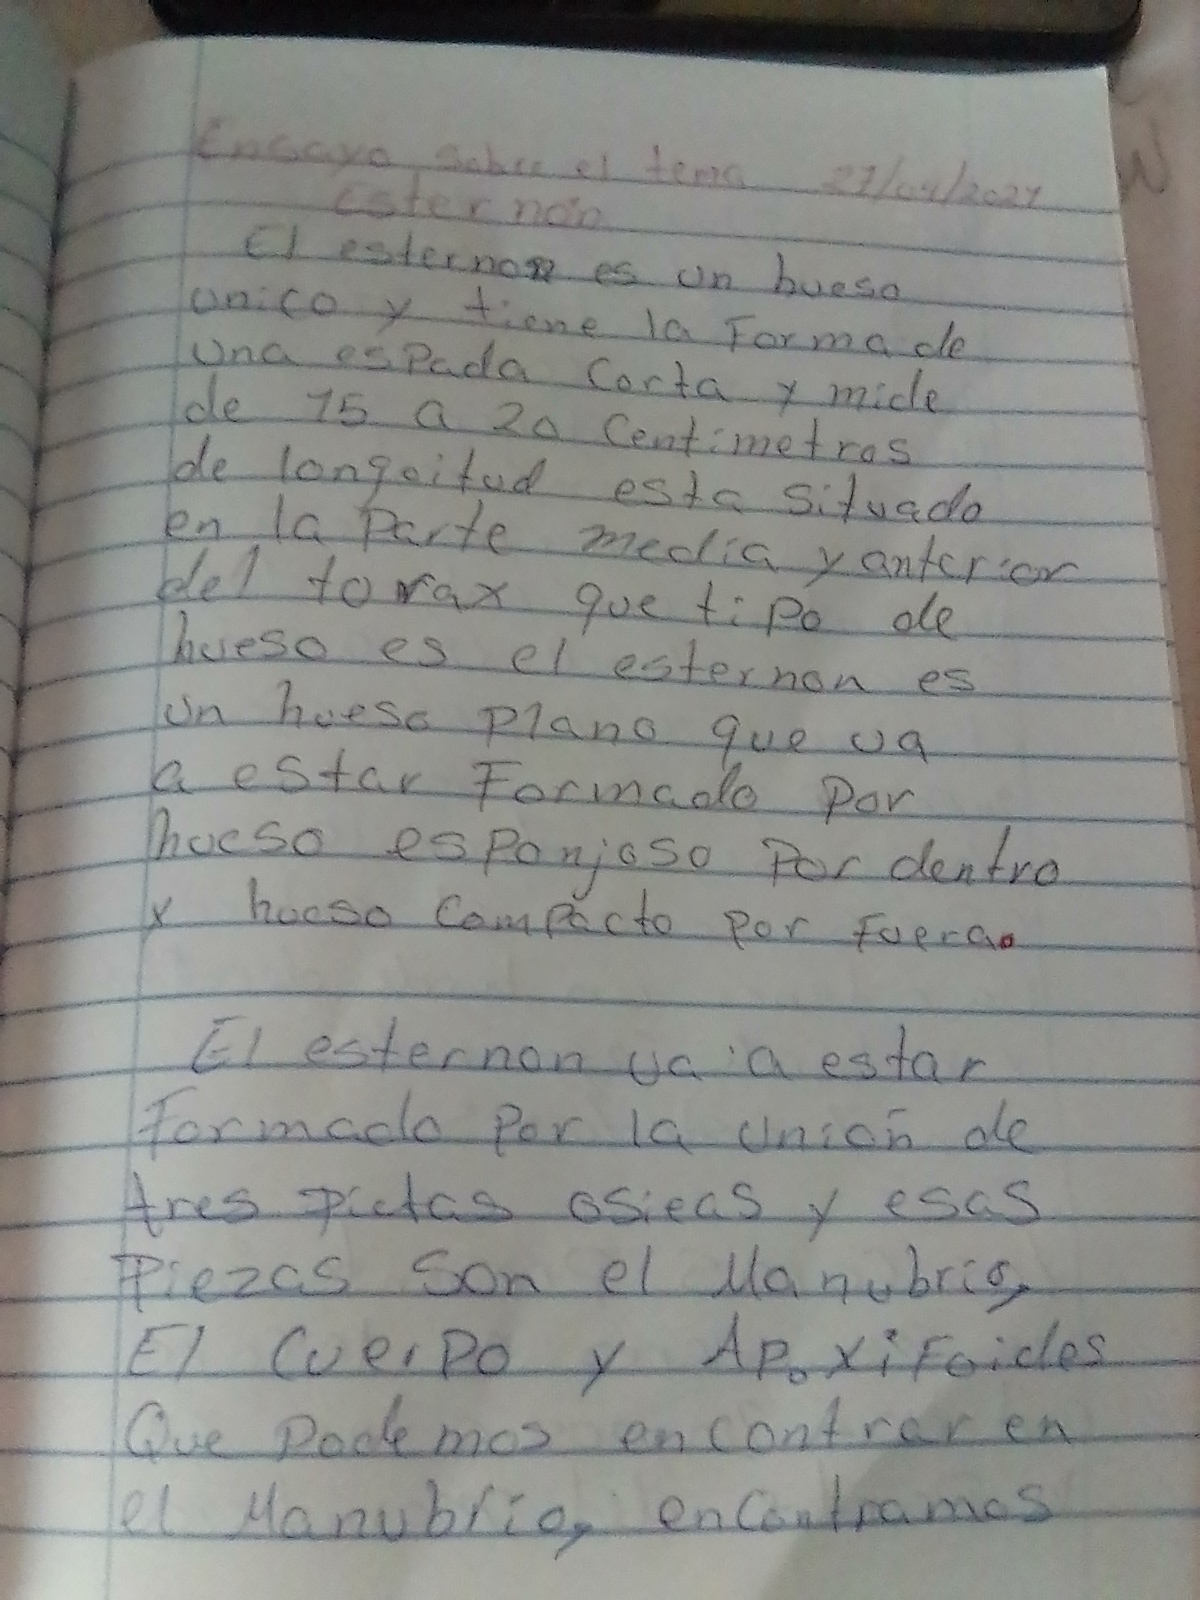 Ensayo sobre el tema 27/04/2024
esternón
El esternon es un hueso
unico y tiene la Forma de
una espada Corta y mide
de 15 a 20 Centimetros
de longeitud esta situado
en la parte media y anterior
del torax que tipo de
hueso es el esternon es
un hueso plano que va
a estar Formado por
hueso esponjoso por dentro
y hueso Compacto por fuera.
El esternon va a estar
Formado por la Unión de
tres pietas osieas y esas
Piezas son el Manubrio,
El Cuerpo y Ap. xifoides
Que podemos encontrar en
el Manubrio, encontramos